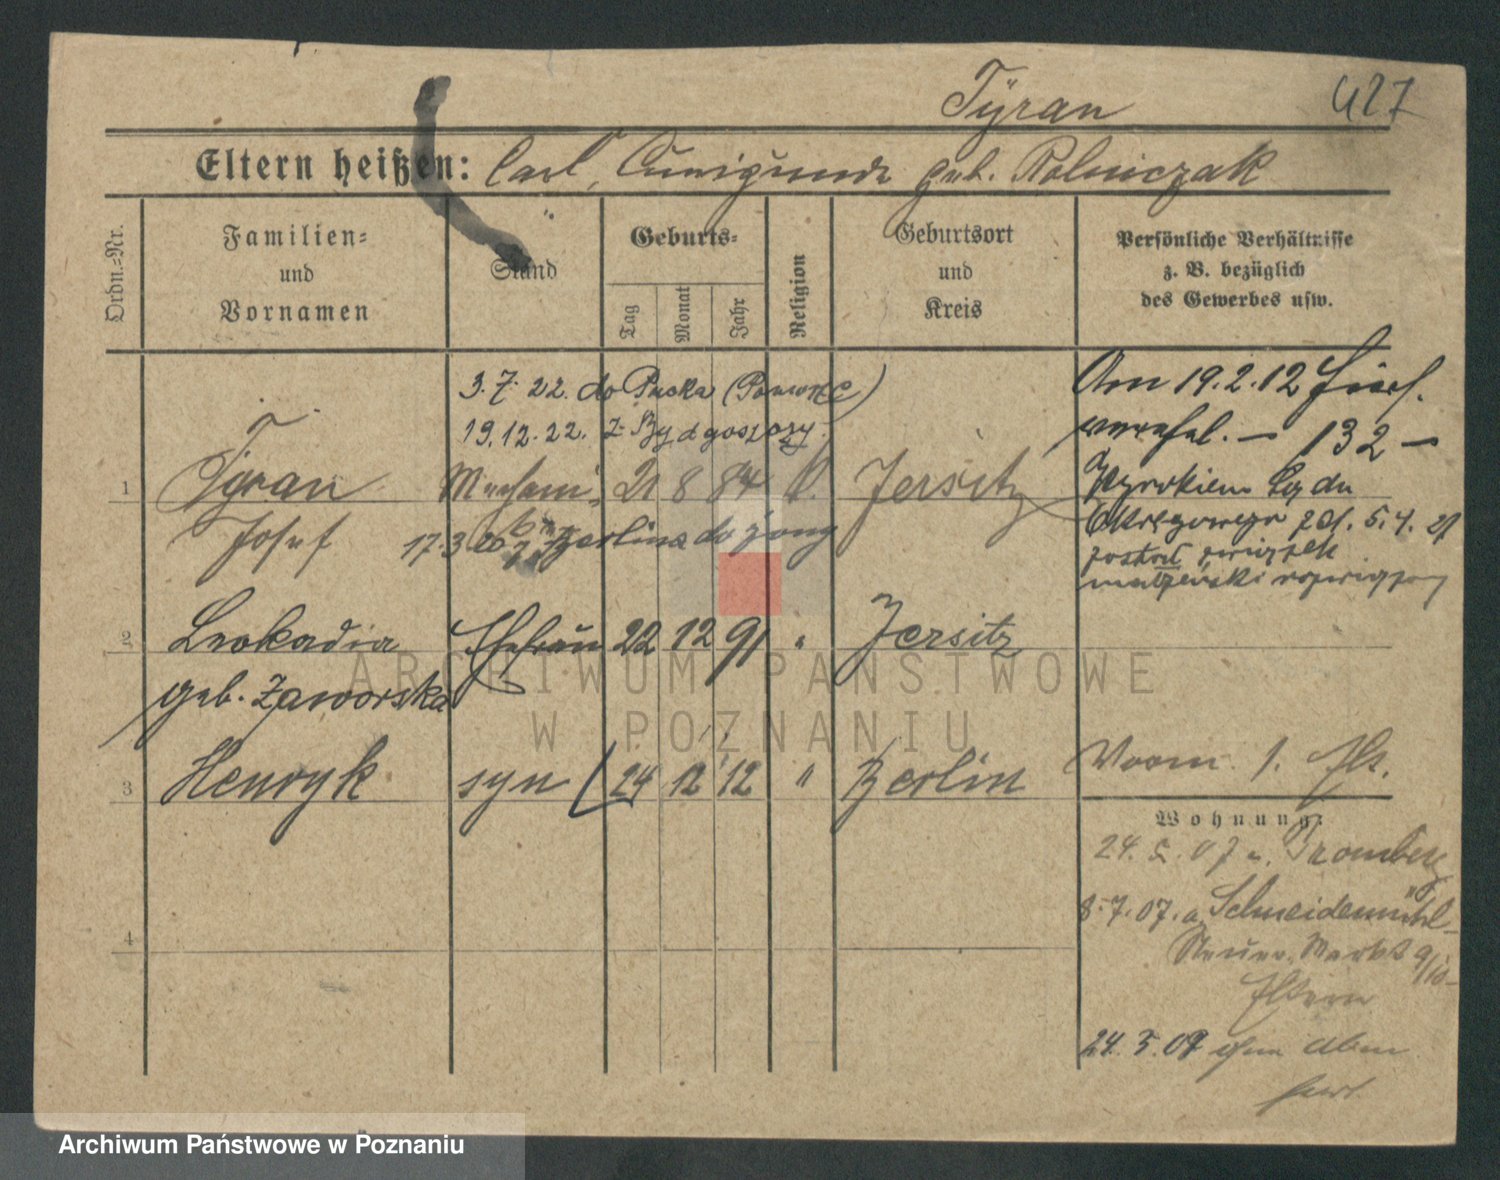 Tyran 427
Eltern heißen: Carl, Cunigunde geb. Rolniczak
Ordn.-Nr.
Familien-
und
Vornamen
Stand
Geburts-
Tag
Monat
Jahr
Religion
Geburtsort
und
Kreis
Persönliche Verhältnisse
z. B. bezüglich
des Gewerbes usw.
3.7.22. do Pucka
19.12.22. z Bydgoszczy.
Am 19.2.12
132
1 Tyran 21 8 84 k. Jersitz
Josef 17.3 20 z Berlina do żony
Wyrokiem Sądu
Okręgowego 5.4.21
został związek
małżeński
2 Leokadia Ehefrau 22 12 91 " Jersitz
geb. Zaworska
3 Henryk syn 24 12 12 " Berlin
Vorm. 1.
Wohnung:
24.5.07 n. Bromberg
8.7.07. a. Schneidemühl
Neuer Markt 9/10
Eltern
4
24.5.09
ARCHIWUM PAŃSTWOWE
W POZNANIU
Archiwum Państwowe w Poznaniu